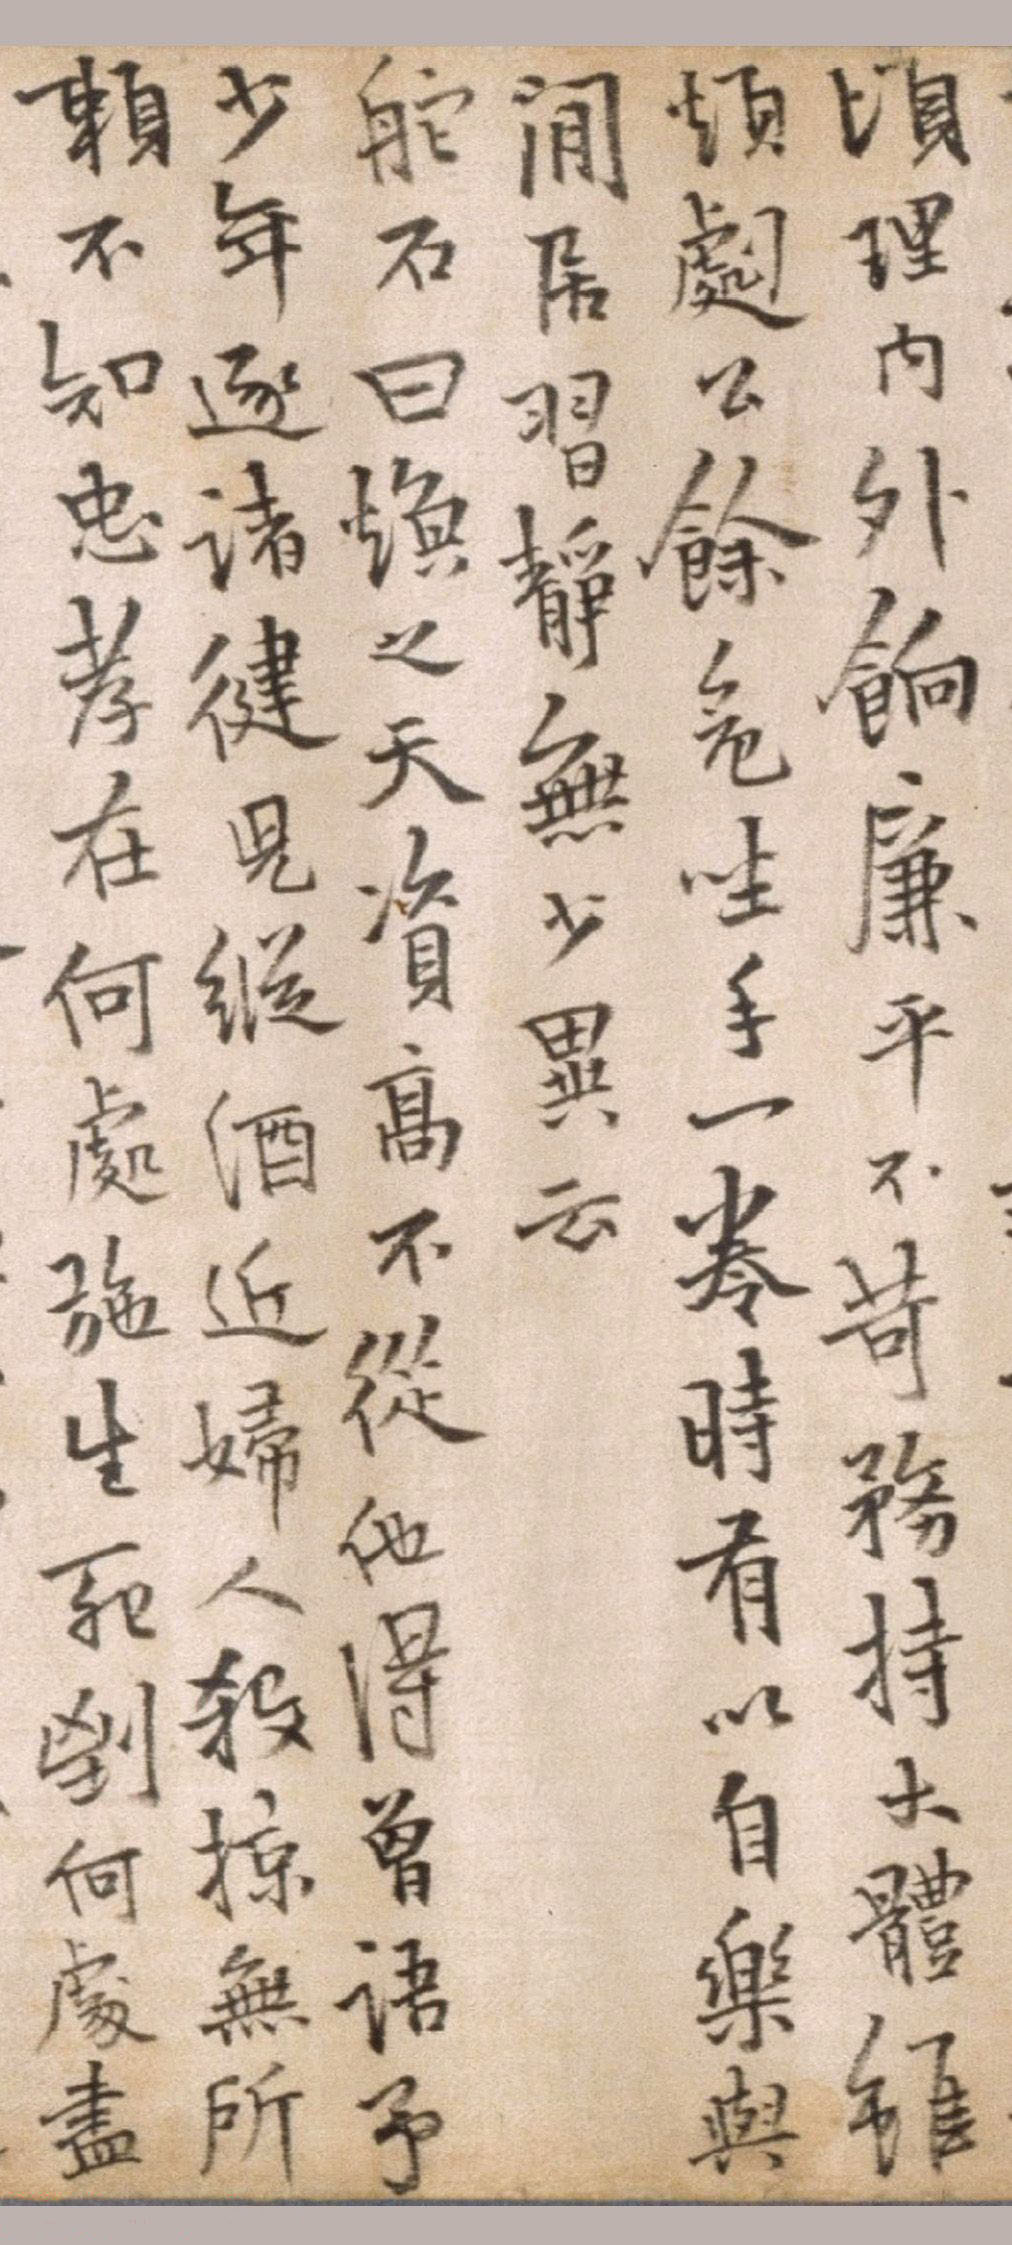 頃理內外餉廉平不苛務持大體雖
煩劇公餘危坐手一卷時有以自樂與
閒居習靜無少異云
舵石曰煥之天資高不從他得曾語予
少年逐諸健兒縱酒近婦人殺掠無所
賴不知忠孝在何處施生死何處盡